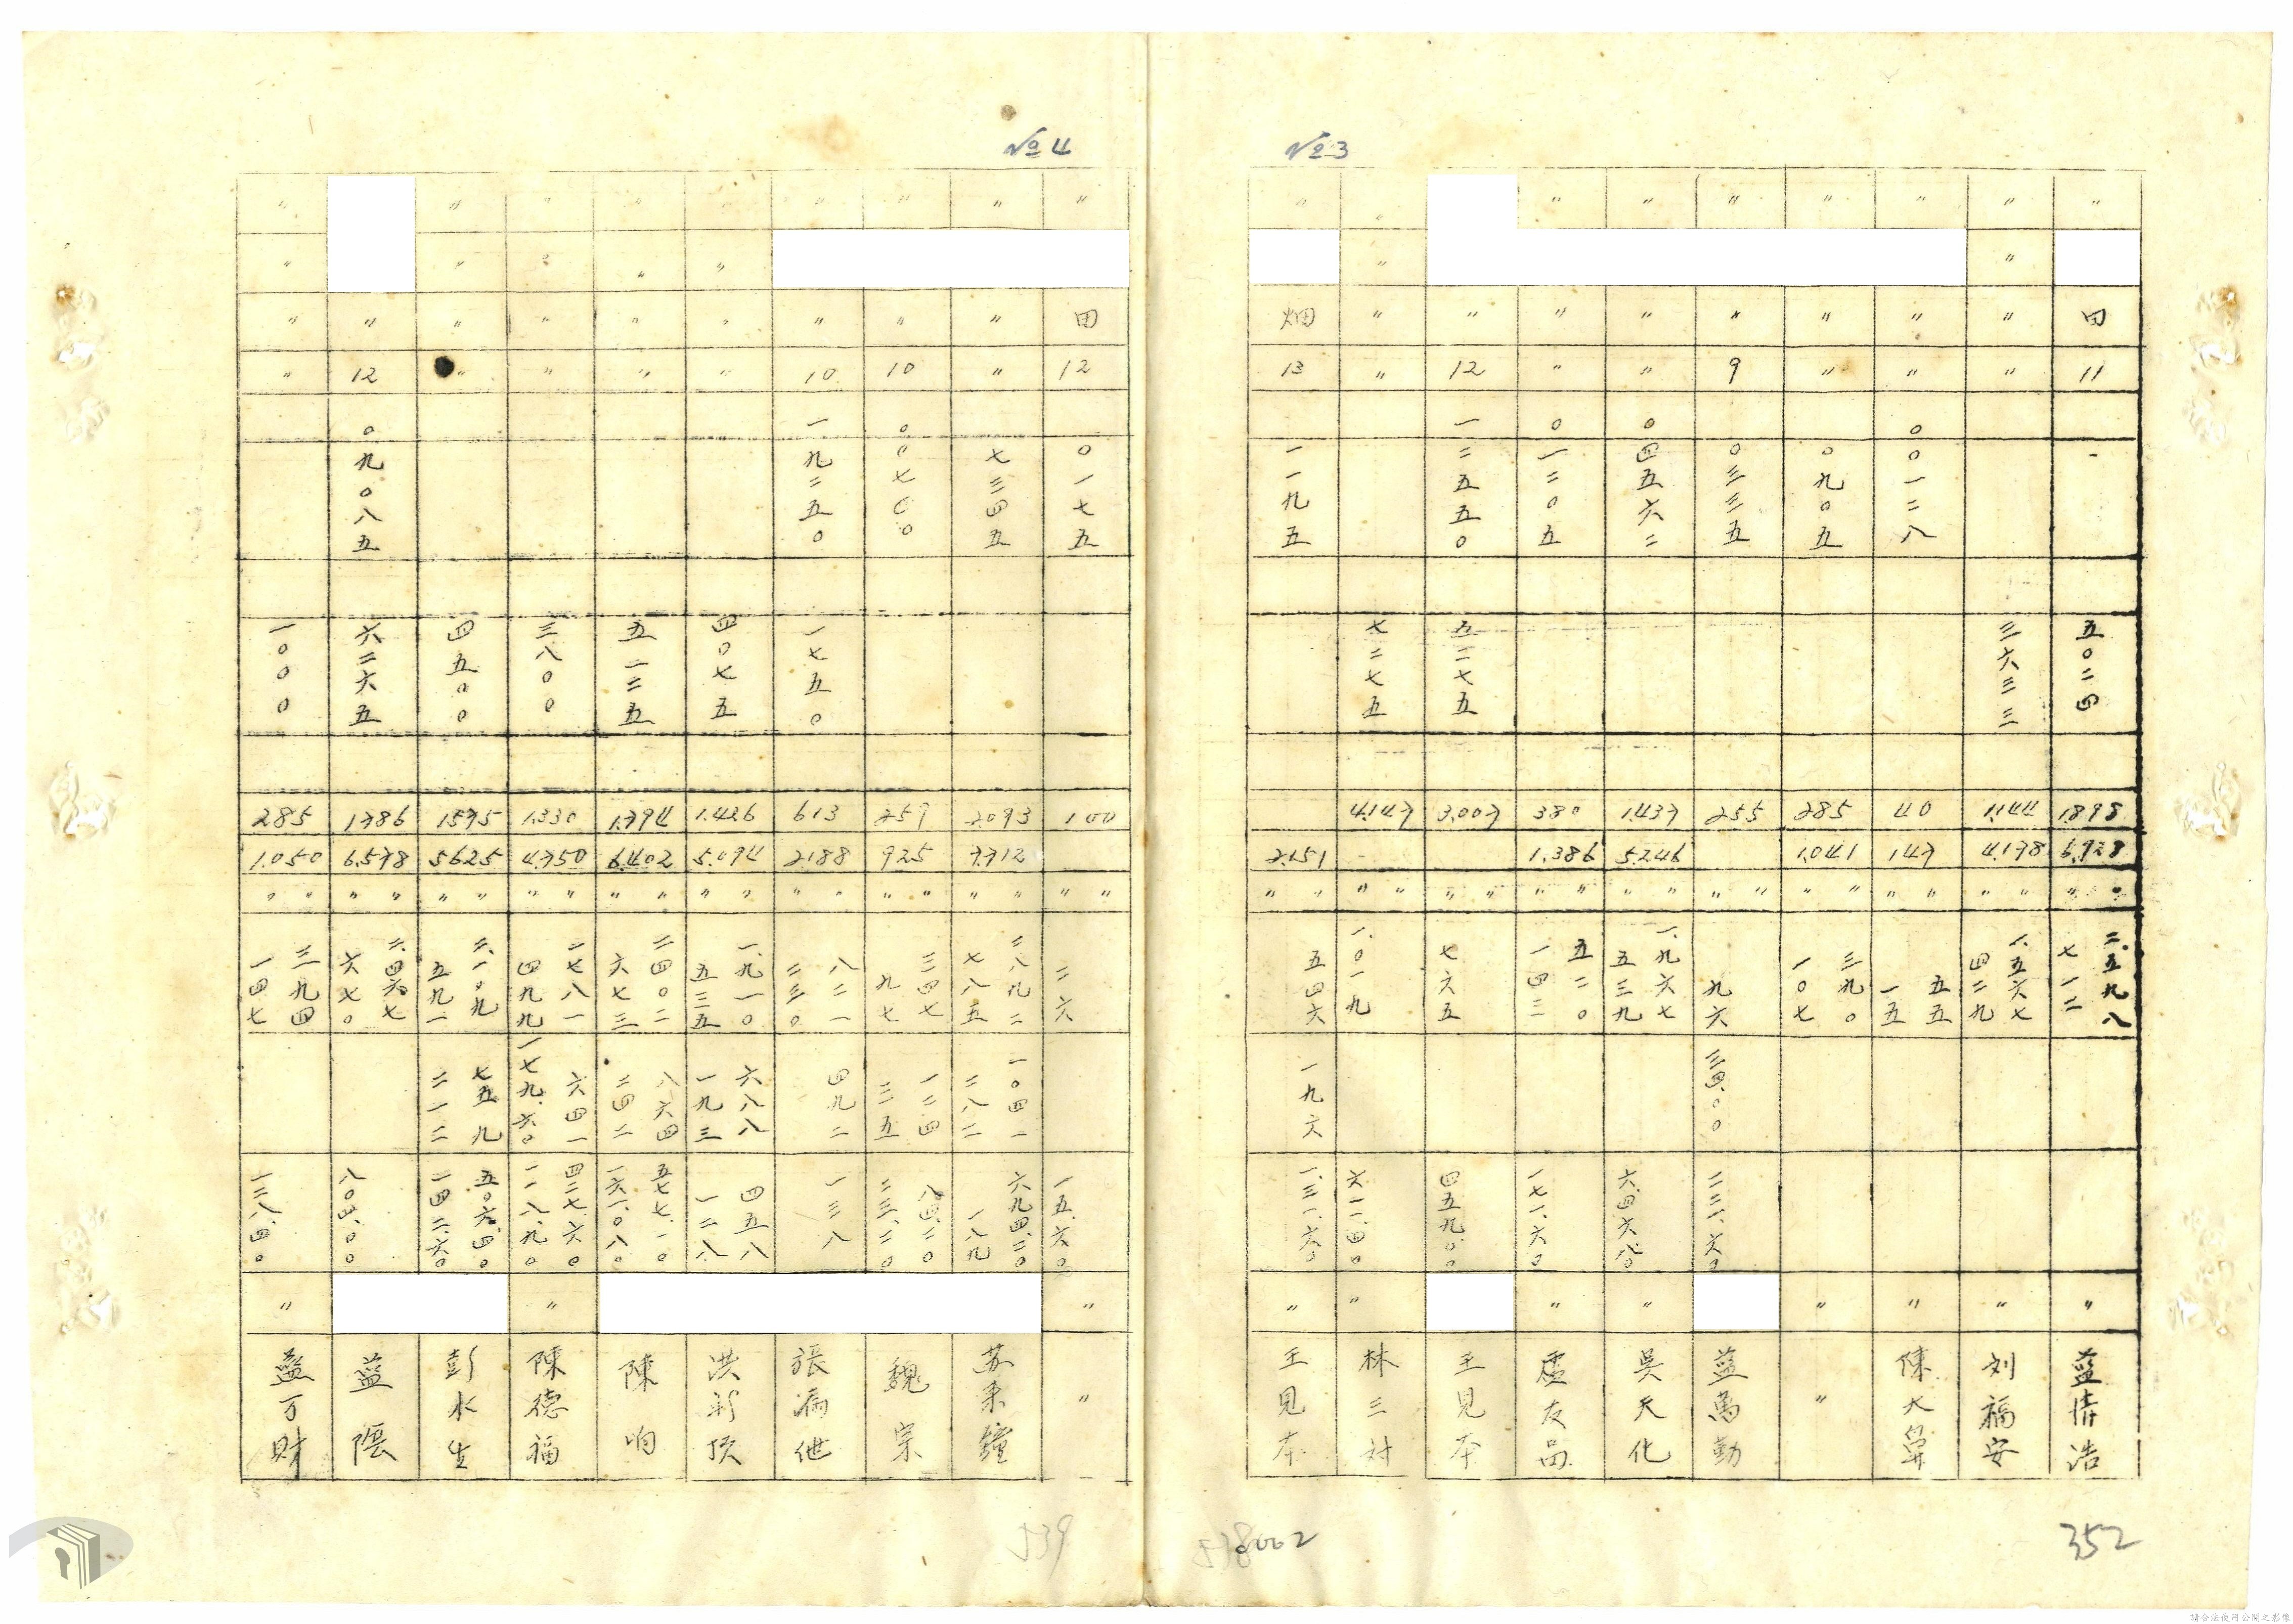 №3
〃 田 11 五〇二四 1.898 6.928 〃 〃 二.五九八 七一二 〃 藍情浩
〃 〃 〃 〃 三六三三 1.144 4.178 〃 〃 一.五六七 四二九 〃 刘福安
〃 〃 〃 〇〇一二八 40 147 〃 〃 五五 一五 〃 陳大鼻
〃 〃 〃 〇九〇五 285 1.041 〃 〃 三九〇 一〇七 〃 〃
〃 〃 9 〇三三五 255 〃 〃 九六 三四.〇〇 二三一.六〇 藍萬勤
〃 〃 〃 〇四五六二 1.437 5.246 〃 〃 一.九六七 五三九 六.四六八〇 〃 吳天化
〃 〃 〃 〇一二〇五 380 1.386 〃 〃 五二〇 一四二 一七一.六〇 〃 盧友品
〃 12 一二五五〇 五二七五 3.007 〃 〃 七六五 四五九.〇〇 王見本
〃 〃 〃 〃 七二七五 4.147 〃 〃 一.〇一九 六一一.四〇 〃 林三対
〃 畑 13 一一九五 2.151 〃 〃 五四六 一九六 一.三一.六〇 〃 王見本
352
8002
№4
〃 田 12 〇一七五 100 〃 〃 二六 一五.六〇 〃 〃
〃 〃 〃 七三四五 2.093 7.712 〃 〃 二八九二 七八五 一〇四一 二八二 六九四.二〇 一八九 苏秉鐘
〃 〃 10 〇〇七〇〇 259 925 〃 〃 三四七 九七 一二四 三五 八四.二〇 二三.二〇 魏宗
〃 〃 10 一九二五〇 一七五〇 613 2188 〃 〃 八二一 二三〇 四九二 一三八 張滿他
〃 〃 〃 〃 四〇七五 1.426 5.094 〃 〃 一.九一〇 五三五 六八八 一九三 四五八 一二八 洪新頂
〃 〃 〃 〃 五一二五 1.794 6.402 〃 〃 二四〇二 六七三 八六四 二四二 五七七.一〇 一六一.〇八〇 陳响
〃 〃 〃 〃 三八〇〇 1.330 4.750 〃 〃 一七八一 四九九 六四一 一七九.六〇 四二七.六〇 一一八.九〇 〃 陳德福
〃 〃 〃 〃 四五〇〇 1575 5625 〃 〃 二.一〇九 五九一 七五九 二一二 五〇六.四〇 一四二.六〇 彭水生
〃 12 〇九〇八五 六二六五 1786 6.578 〃 〃 二.四六七 六七〇 八〇四.〇〇 藍隠
〃 〃 〃 〃 一〇〇〇 285 1.050 〃 〃 三九四 一四七 一二八.四〇 〃 藍万財
539
請合法使用公開之影像